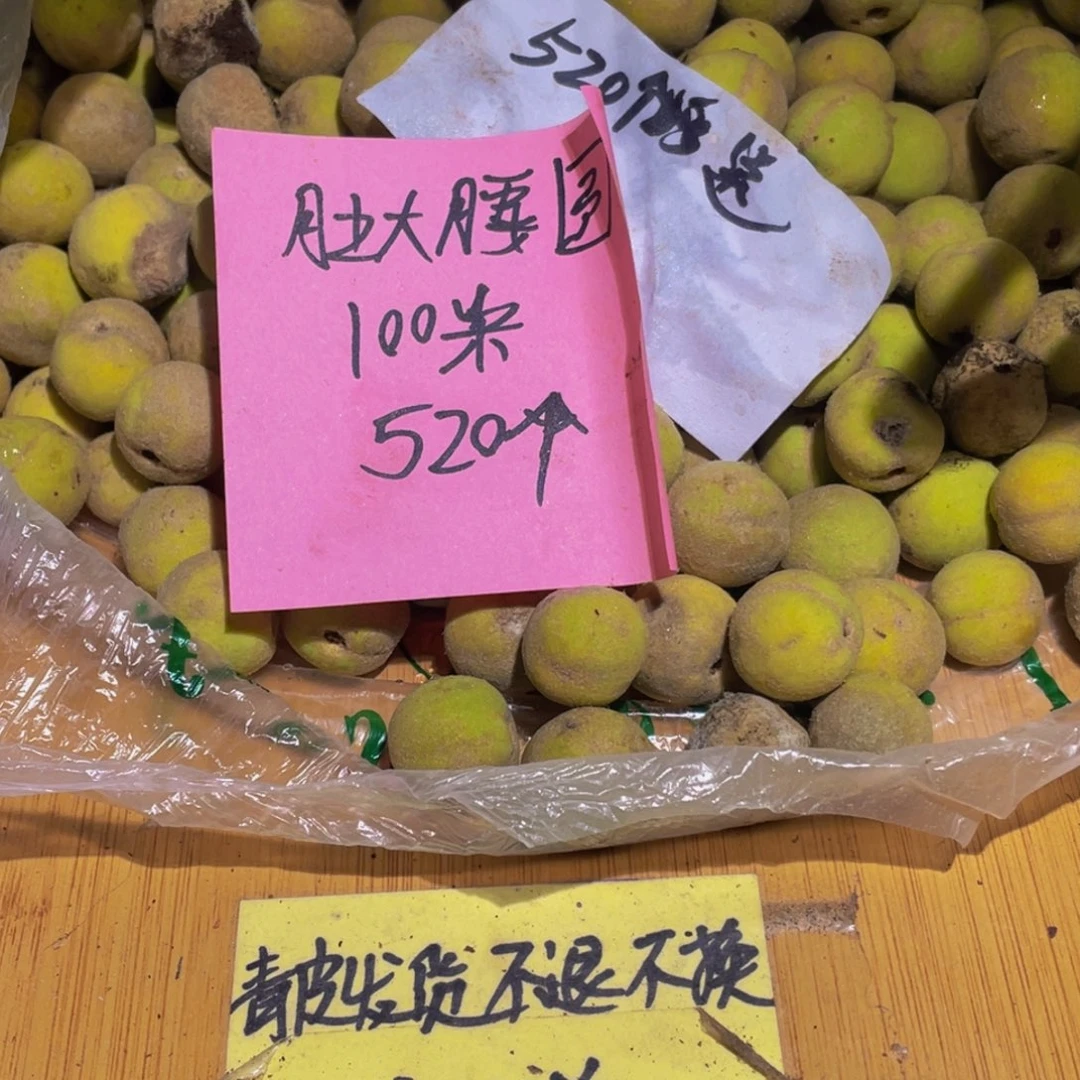 520个
选
肚大腰圆
100米
520个
青皮发货不退不换